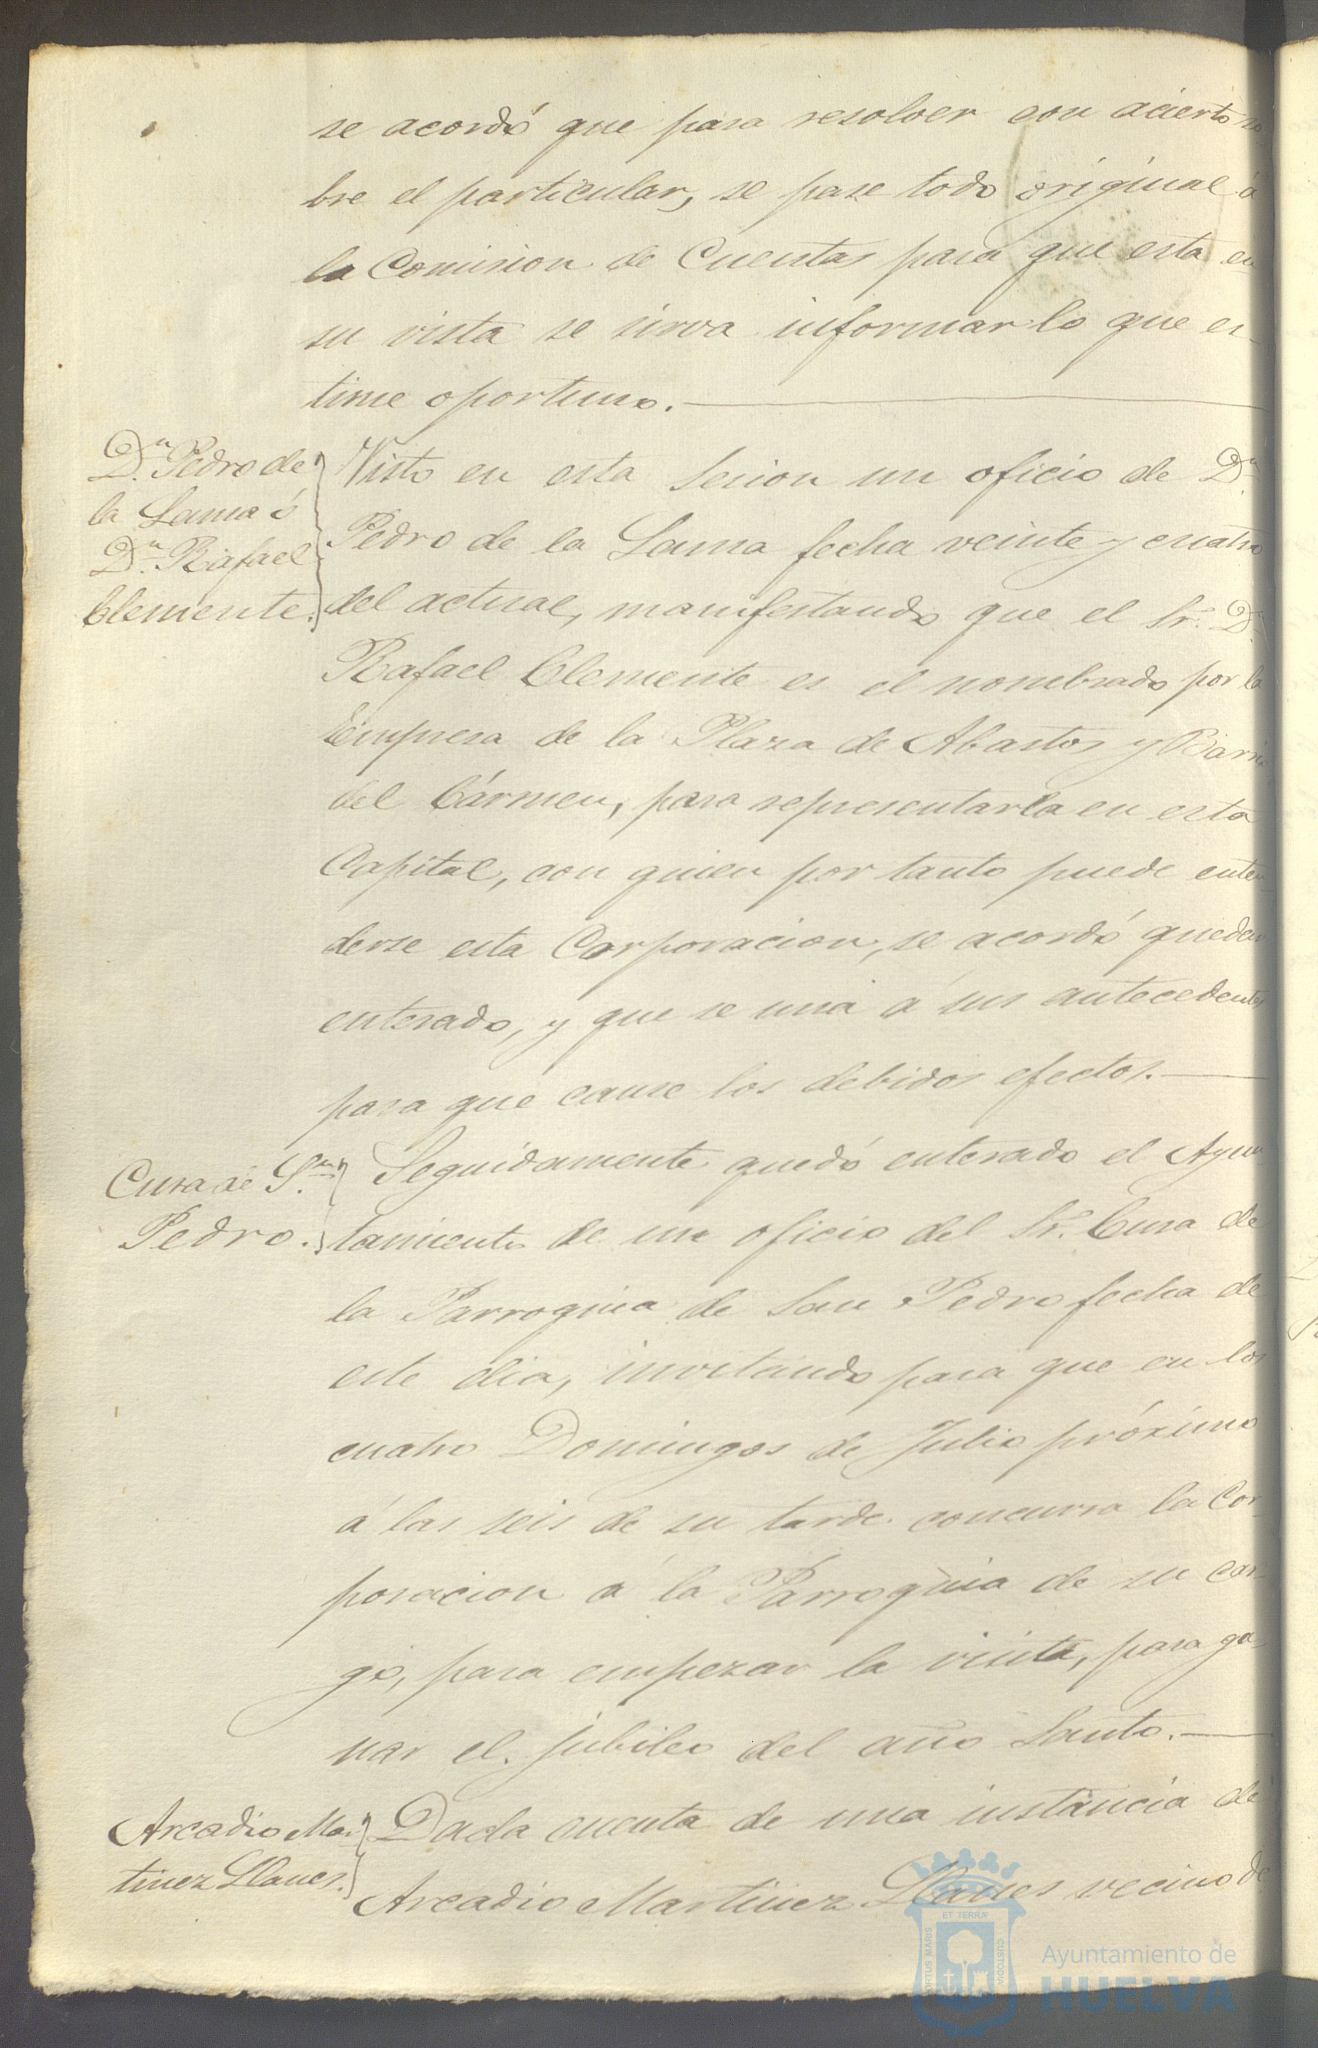 se acordó que para resolver con acierto so
bre el particular, se pase todo original á
la Comision de Cuentas para que esta en
su vista se sirva informar lo que es-
time oportuno.
Dn. Pedro de
la Lama ó
Dn. Rafael
Clemente.
Visto en esta sesion un oficio de Dn.
Pedro de la Lama fecha veinte y cuatro
del actual, manifestando que el Sr. Dn.
Rafael Clemente es el nombrado por la
Empresa de la Plaza de Abastos y Barrio
del Cármen, para representarla en esta
Capital, con quien por tanto puede enten-
derse esta Corporacion, se acordó quedar
enterado, y que se una á sus antecedentes
para que cause los debidos efectos.
Cura de Sn.
Pedro.
Seguidamente quedó enterado el Ayun
tamiento de un oficio del Sr. Cura de
la Parroquia de San Pedro fecha de
este dia, invitando para que en los
cuatro Domingos de Julio próximo
á las seis de su tarde concurra la Cor-
poracion á la Parroquia de su car-
go, para empezar la visita, para ga-
nar el jubileo del año Santo.
Arcadio Mar-
tinez Llanes.
Dada cuenta de una instancia de
Arcadio Martinez Llanes vecino de
ET TERRÆ
PORTUS MARIS
CUSTODIA
Ayuntamiento de
HUELVA